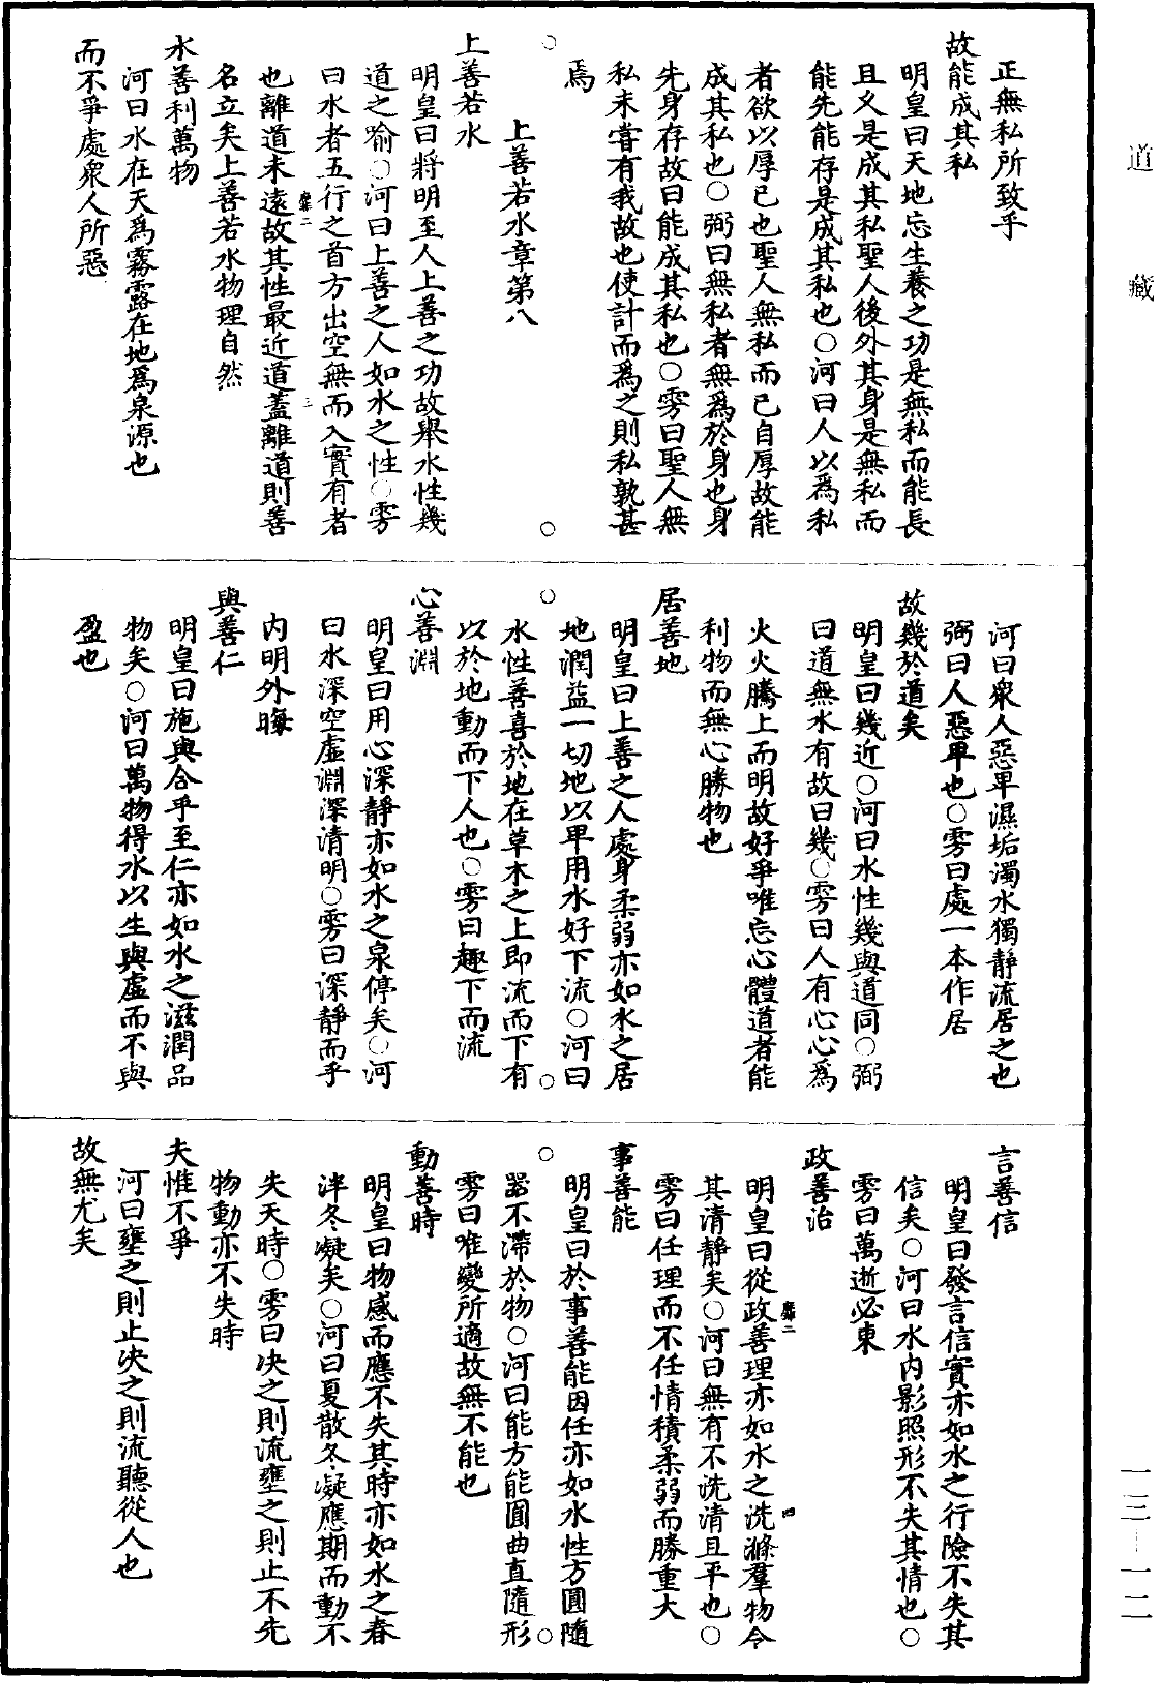 道藏
正無私所致乎
故能成其私
明皇曰天地忘生養之功是無私而能長
且久是成其私聖人後外其身是無私而
能先能存是成其私也○河曰人以爲私
者欲以厚已也聖人無私而已自厚故能
成其私也○弼曰無私者無爲於身也身
先身存故曰能成其私也○雱曰聖人無
私未嘗有我故也使計而爲之則私孰甚
焉
上善若水章第八
上善若水
明皇曰將明至人上善之功故舉水性幾
道之喻○河曰上善之人如水之性○雱
曰水者五行之首方出空無而入實有者
也離道未遠故其性最近道蓋離道則善
名立矣上善若水物理自然
水善利萬物
河曰水在天爲霧露在地爲泉源也
而不爭處衆人所惡
河曰衆人惡卑濕垢濁水獨靜流居之也
弼曰人惡卑也○雱曰處一本作居
故幾於道矣
明皇曰幾近○河曰水性幾與道同○弼
曰道無水有故曰幾○雱曰人有心心爲
火火騰上而明故好爭唯忘心體道者能
利物而無心勝物也
居善地
明皇曰上善之人處身柔弱亦如水之居
地潤益一切地以卑用水好下流○河曰
水性善喜於地在草木之上即流而下有
以於地動而下人也○雱曰趣下而流
心善淵
明皇曰用心深靜亦如水之泉停矣○河
曰水深空虛淵深清明○雱曰深靜而乎
内明外晦
與善仁
明皇曰施與合乎至仁亦如水之滋潤品
物矣○河曰萬物得水以生與虛而不與
盈也
言善信
明皇曰發言信實亦如水之行險不失其
信矣○河曰水内影照形不失其情也○
雱曰萬逝必東
政善治
明皇曰從政善理亦如水之洗滌羣物令
其清靜矣○河曰無有不洗清且平也○
雱曰任理而不任情積柔弱而勝重大
事善能
明皇曰於事善能因任亦如水性方圓隨
器不滯於物○河曰能方能圓曲直隨形
雱曰唯變所適故無不能也
動善時
明皇曰物感而應不失其時亦如水之春
泮冬凝矣○河曰夏散冬凝應期而動不
失天時○雱曰决之則流壅之則止不先
物動亦不失時
夫惟不爭
河曰壅之則止决之則流聽從人也
故無尤矣
一三—一二